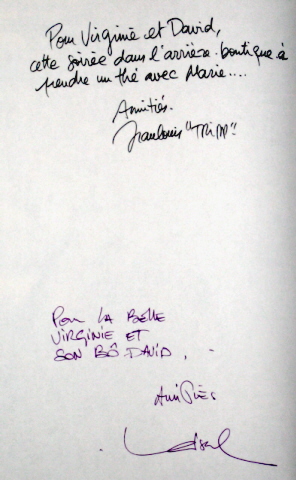 Pour Virginie et David,
cette soirée dans l'arrière-boutique à
prendre un thé avec Marie....
Amitiés.
Jean Louis "TRIPP"
POUR LA BELLE
VIRGINIE ET
SON BÔ DAVID.
Amitiés
Loisel